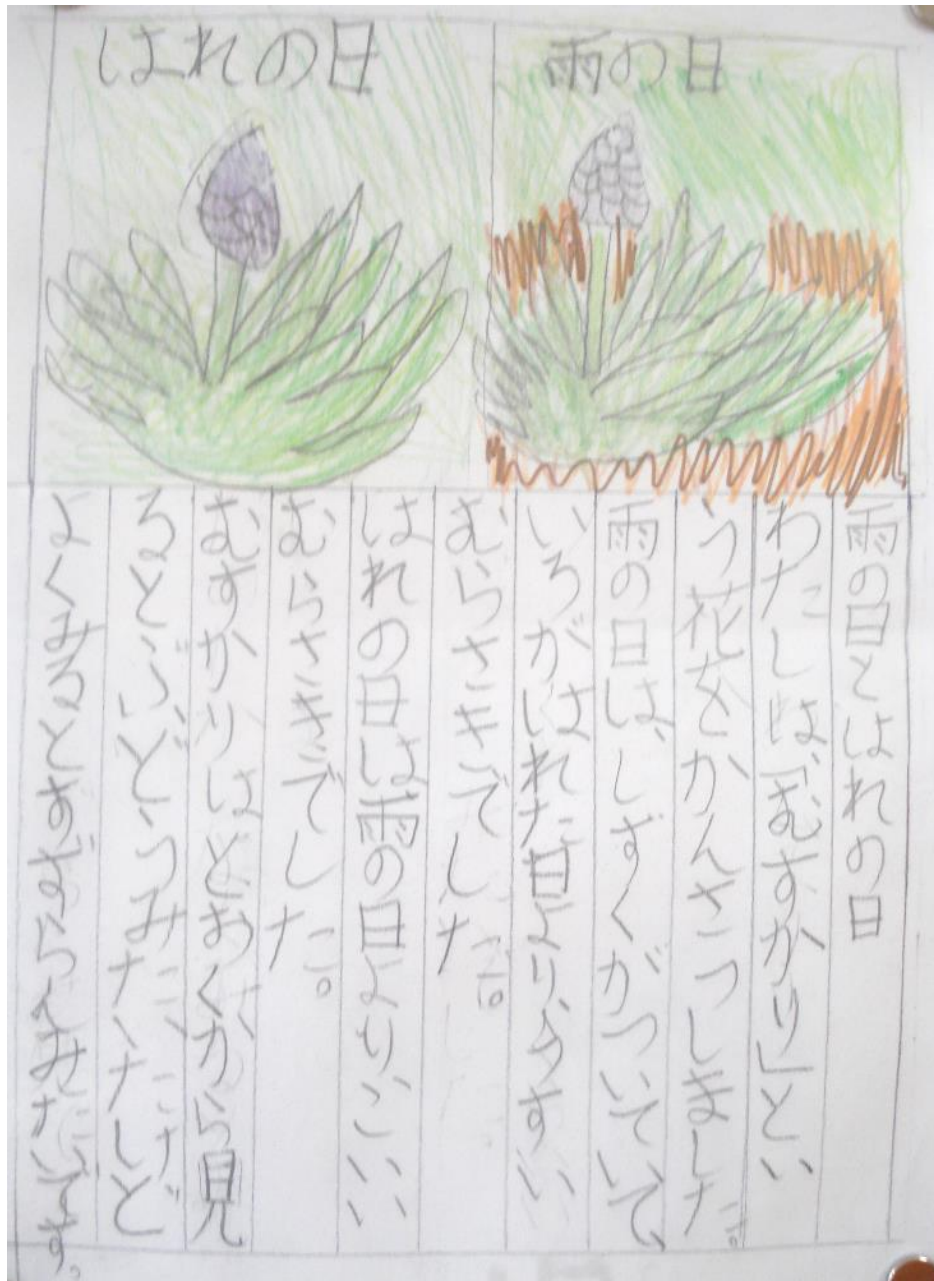 はれの日
雨の日
雨の日とはれの日
わたしは「むすかり」とい
う花をかんさつしました。
雨の日は、しずくがついていて
いろがはれた日より、うすい
むらさきでした。
はれの日は雨の日よりこいい
むらさきでした。
むすかりはとおくから見
るとぶどうみたい
よくみるとすずらんみたいです。